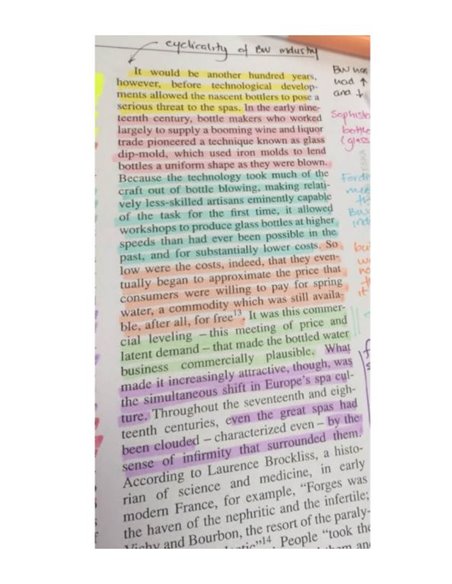 cyclicality of BW industry
It would be another hundred years,
however, before technological develop-
ments allowed the nascent bottlers to pose a
serious threat to the spas. In the early nine-
teenth century, bottle makers who worked
largely to supply a booming wine and liquor
trade pioneered a technique known as glass
dip-mold, which used iron molds to lend
bottles a uniform shape as they were blown.
Because the technology took much of the
craft out of bottle blowing, making relati-
vely less-skilled artisans eminently capable
of the task for the first time, it allowed
workshops to produce glass bottles at higher
speeds than had ever been possible in the
past, and for substantially lower costs. So
low were the costs, indeed, that they even-
tually began to approximate the price that
consumers were willing to pay for spring
water, a commodity which was still availa-
ble, after all, for free13 It was this commer-
cial leveling – this meeting of price and
latent demand – that made the bottled water
business commercially plausible. What
made it increasingly attractive, though, was
the simultaneous shift in Europe's spa cul-
ture. Throughout the seventeenth and eigh-
teenth centuries, even the great spas had
been clouded – characterized even – by the
sense of infirmity that surrounded them.
According to Laurence Brockliss, a histo-
rian of science and medicine, in early
modern France, for example, "Forges was
the haven of the nephritic and the infertile;
Vichy and Bourbon, the resort of the paraly-
"14 People "took the
BW
had ↑
and ↓
bottle
(glass